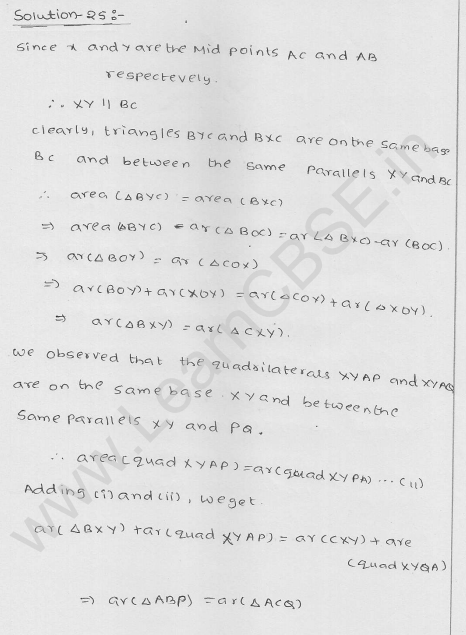 Solution-25:-
Since x and y are the Mid points AC and AB
respectevely.
∴ XY || BC
clearly, triangles BYC and BXC are on the same base
BC and between the same parallels XY and BC
∴ area (△BYC) = area (BXC)
⇒ area (△BYC) = ar(△BOC) = ar(△BXC)-ar (BOC).
⇒ ar(△BOY) = ar (△COX)
⇒ ar(BOY)+ar(XOY) = ar(△COY)+ar(△XOY).
⇒ ar(△BXY) = ar(△CXY).
we observed that the quadsilaterals XYAP and XYAQ
are on the same base XY and between the
same parallels XY and PQ.
∴ area(quad XYAP)=ar(quad XYPA) ...(11)
Adding (i) and (ii), we get.
ar(△BXY) +ar(quad XYAP) = ar(CXY)+ are
(quad XYQA)
⇒ ar(△ABP) = ar(△ACQ)
www.LearnCBSE.in